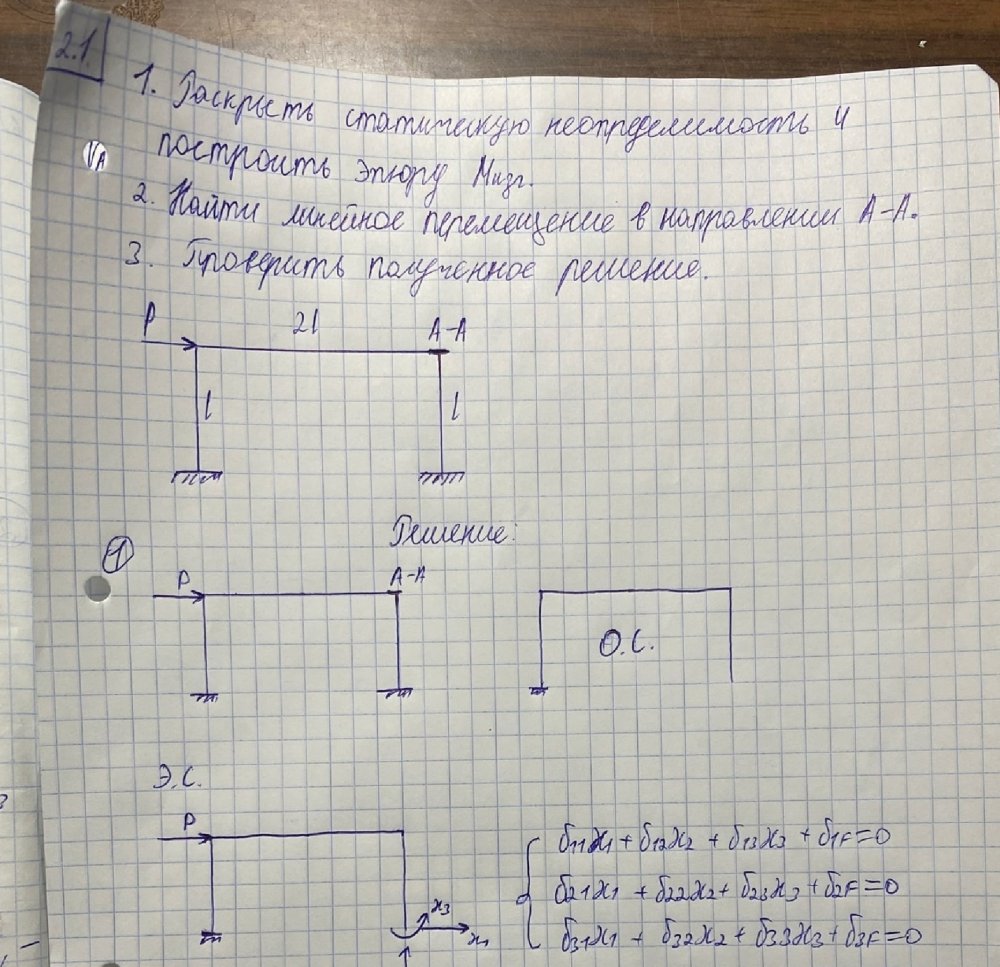 2.1.
1. Раскрыть статическую неопределимость и
VA
построить эпюру Мизг.
2. Найти линейное перемещение в направлении А-А.
3. Проверить полученное решение.
P
2l
A-A
l
l
Решение:
1
P
A-A
О.С.
Э.С.
P
x3
x1
δ11x1 + δ12x2 + δ13x3 + δ1F=0
δ21x1 + δ22x2 + δ23x3 + δ2F=0
δ31x1 + δ32x2 + δ33x3 + δ3F=0